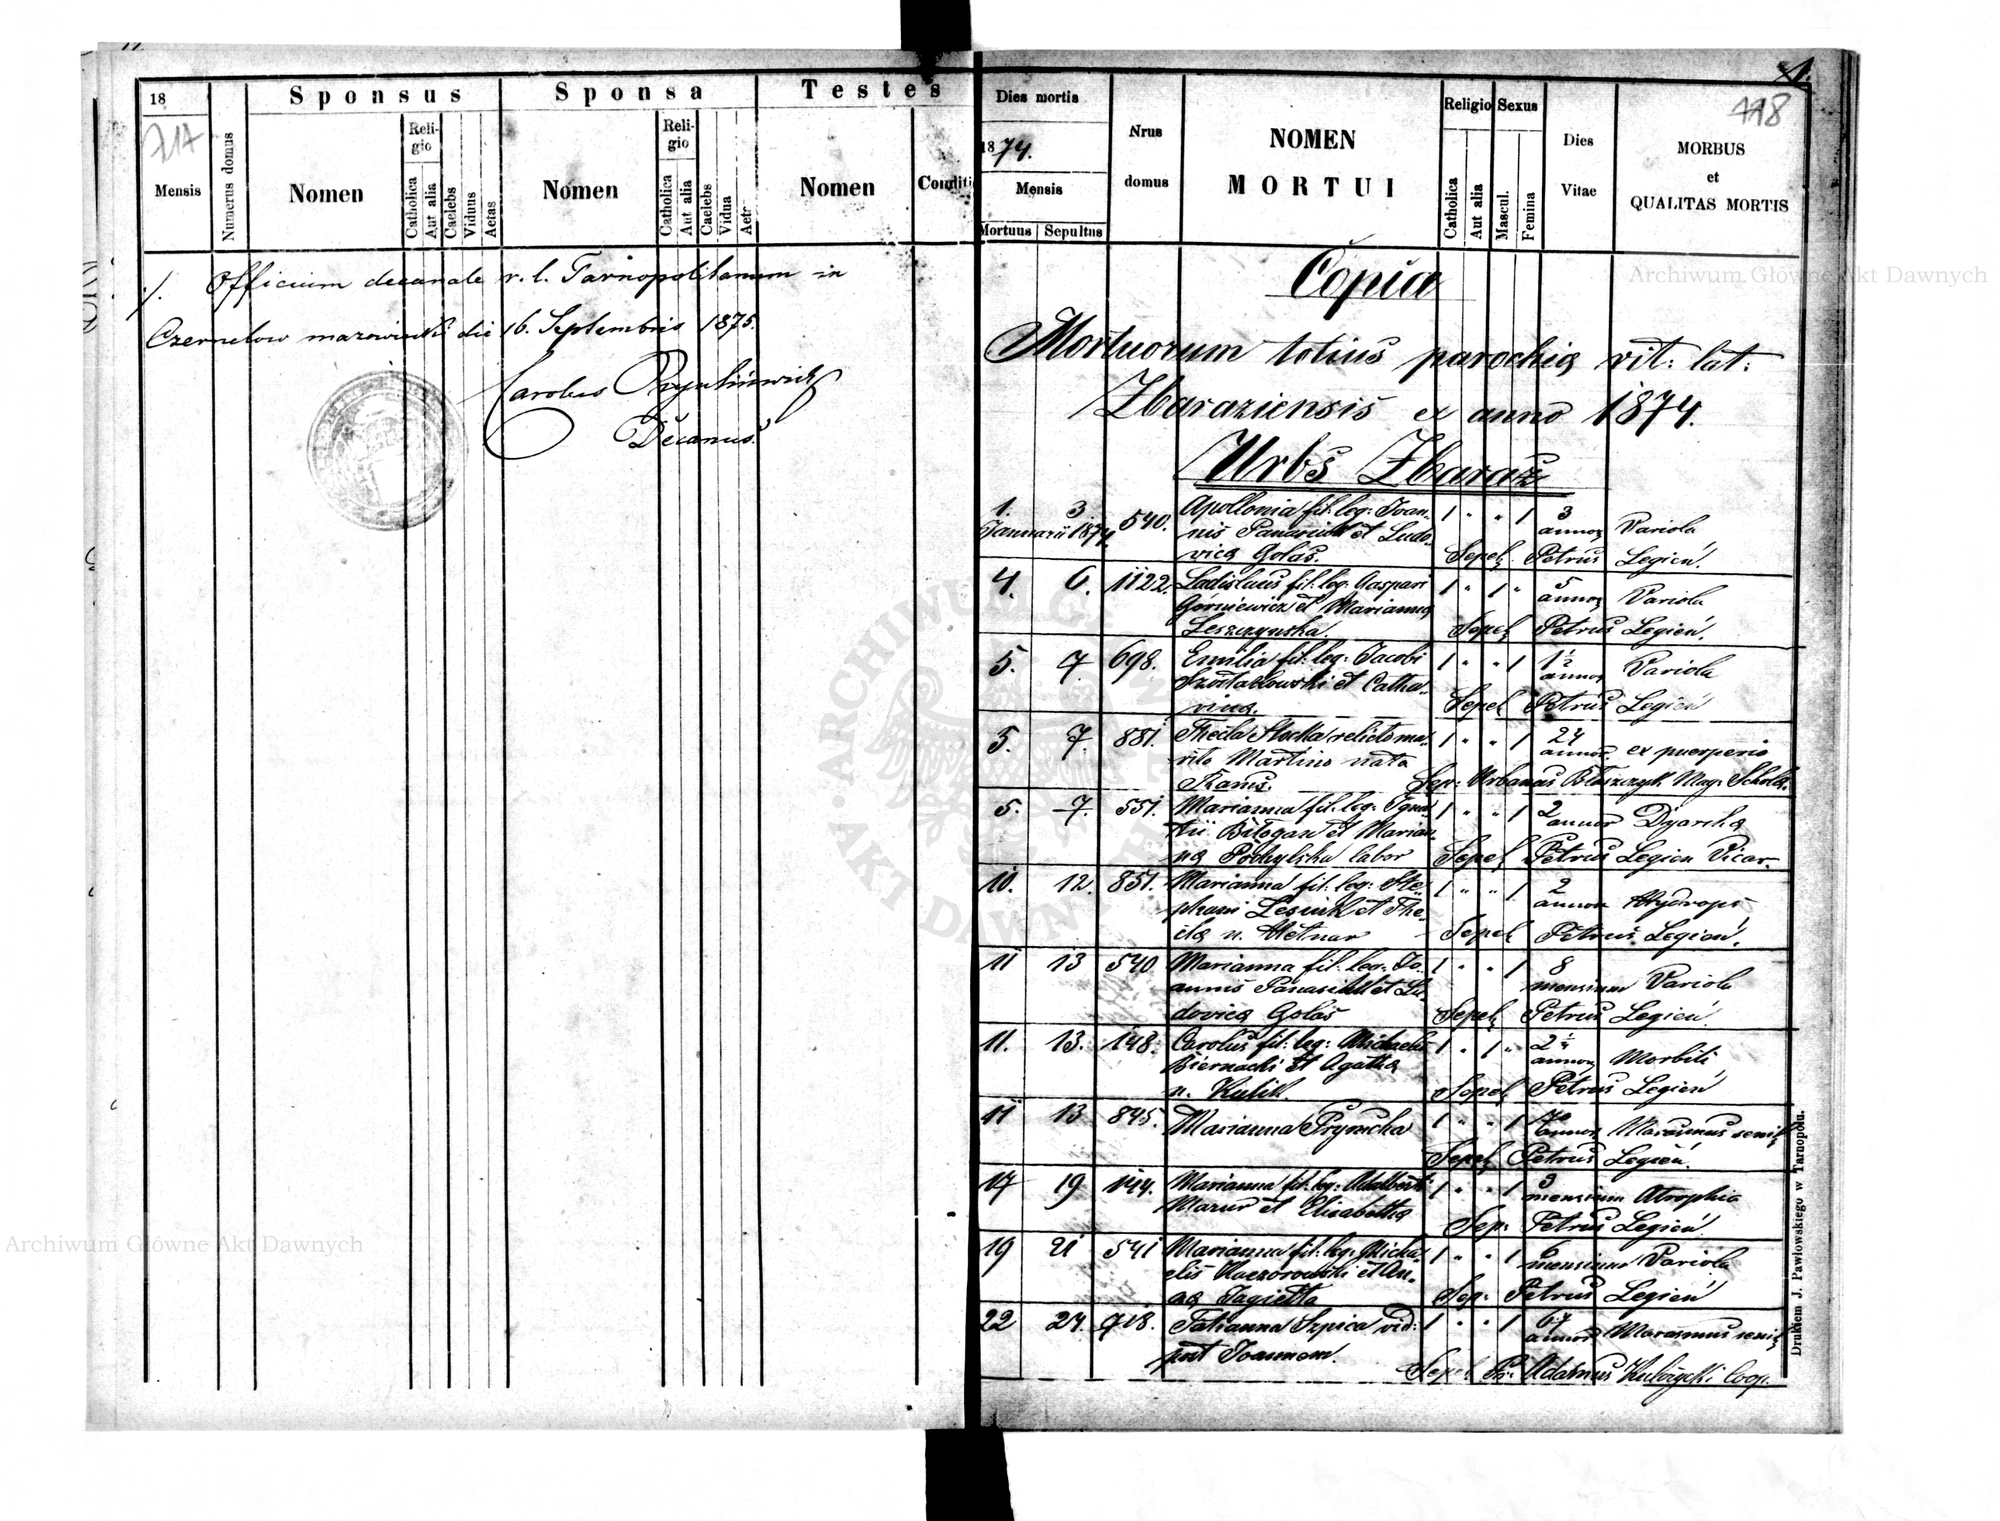 18
717
Mensis
Numerus domus
Sponsus
Nomen
Religio
Catholica
Aut alia
Caelebs
Viduus
Aetas
Sponsa
Nomen
Religio
Catholica
Aut alia
Caelebs
Vidua
Testes
Nomen
./. Officium decanale r. l. Tarnopolitanum in
Czernelow mazowiecki die 16. Septembris 1875.
Carolus
Decanus.
1.
118
Dies mortis
1874.
Mensis
Mortuus
Sepultus
Nrus
domus
NOMEN
MORTUI
Religio
Catholica
Aut alia
Sexus
Mascul.
Femina
Dies
Vitae
MORBUS
et
QUALITAS MORTIS
Copia
Mortuorum totius parochiæ rit: lat:
Zbaraziensis ex anno 1874.
Urbs Zbaraż
1. 3. 540. Apollonia fil: leg: Joan- 1 " " 1 3
Januarii 1874. nis Panasiuk et Ludo- annor Variola
vicæ Golas. Sepel: Petrus Legień.
4. 6. 1122. Ladislaus fil: leg: Caspari 1 " 1 " 5
Górniewicz et Mariannæ annor Variola
Leszczynska. Sepel: Petrus Legień.
5. 7. 698. Emilia fil: leg: Jacobi 1 " " 1 1½
et Catha- annor Variola
rina. Sepel Petrus Legień
5. 7. 881. Thecla relicto ma- 1 " " 1 24
rito Martino nata annor ex puerperio
Sep: Urbanus Błaszczyk Mag: Schola.
5. 7. 551. Marianna fil: leg: Igna- 1 " " 1 2
tii Bilogan et Marian- annor Dyarrhæ
næ labor Sepel Petrus Legien Vicar.
10. 12. 851. Marianna fil: leg: Ste- 1 " " 1 2
phani Lesiuk et The- annor Hydrops
clæ n. Hetnar Sepel Petrus Legień.
11 13 540 Marianna fil: leg: Jo- 1 " " 1 8
annis Panasiuk et Lu- mensium Variola
dovicæ Golas Sepel: Petrus Legień.
11. 13. 148. Carolus fil: leg: Michaelis 1 " 1 " 2¼
Biernacki et Agathæ annor Morbili
n. Kulik. Sepel Petrus Legień
11 13 845. Marianna 1 " " 1 annor Marasmus senil
Sepel Petrus Legień.
17 19 144. Marianna fil: leg: Adalberti 1 " " 1 3
Mazur et Elisabethæ mensium Atrophia
Sep: Petrus Legień
19 21 541 Marianna fil: leg: Micha- 1 " " 1 6
elis Kaczorowski et An- mensium Variola
næ Jagiełła Sep: Petrus Legień
22 24. 718. Tatianna Szpica vid: 1 " " 1 67
post Joannem. annor Marasmus senil
Sepel Pr: Adamus Coop.
Drukiem J. Pawłowskiego w Tarnopolu.
Archiwum Główne Akt Dawnych
Archiwum Główne Akt Dawnych